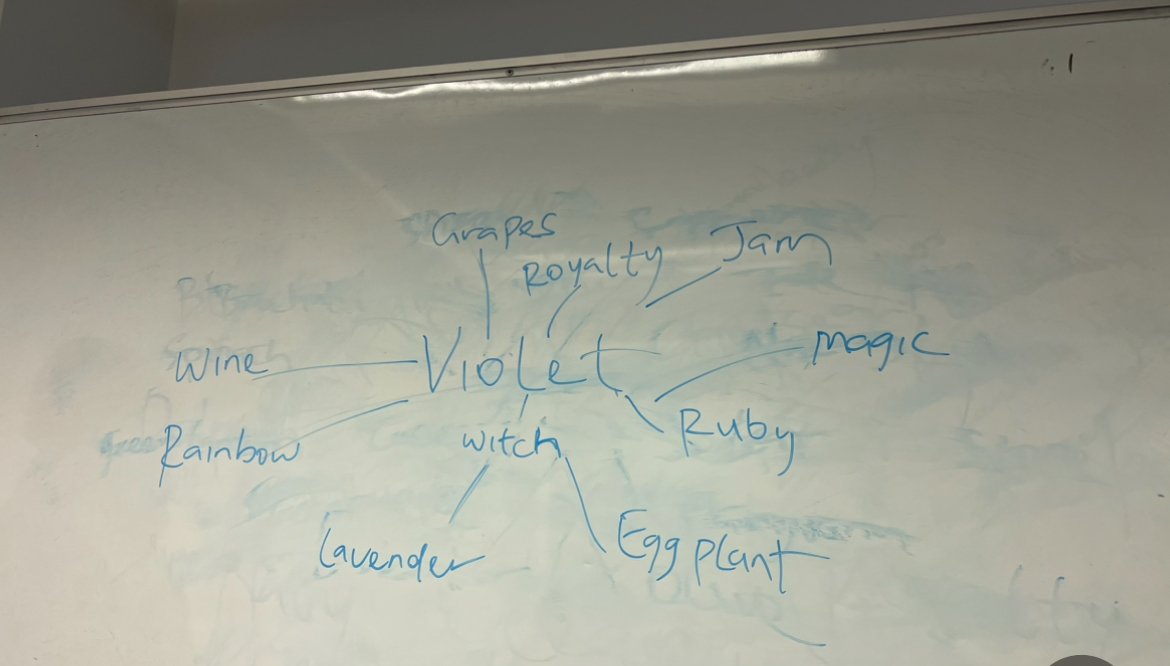 Grapes
Royalty
Jam
Wine
Violet
magic
Rainbow
witch
Ruby
Lavender
Egg plant